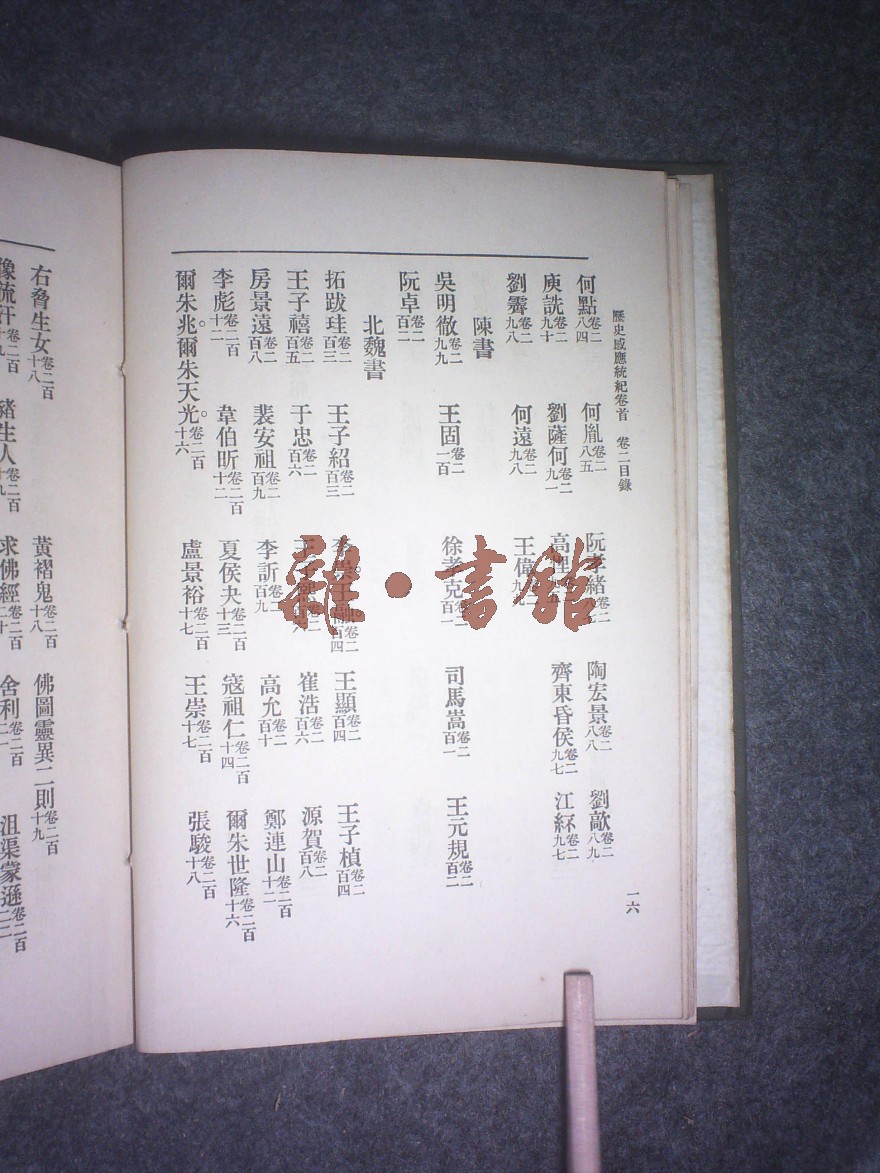 歷史感應統紀卷首 卷二目錄 一六
何點卷二八四 何胤卷二八五 陶宏景卷二八八 劉歊卷二八九
庾詵卷二九十 劉薩何卷二九一 齊東昏侯卷二九七 江紑卷二九七
劉霽卷二九八 何遠卷二九八 王偉
陳書
吳明徹卷二九九 王固卷二一百 徐孝克卷二百一 司馬嵩卷二百一 王元規卷二百二
阮卓卷二百二
北魏書
拓跋珪卷二百三 王子紹卷二百三 王顯卷二百四 王子楨卷二百四
王子禧卷二百五 于忠卷二百六 崔浩卷二百六 源賀卷二百八
房景遠卷二百八 裴安祖卷二百九 李訢卷二百九 高允卷二百十 鄭連山卷二百十二
李彪卷二百十二 韋伯昕卷二百十二 夏侯夬卷二百十三 寇祖仁卷二百十四 爾朱世隆卷二百十六
爾朱兆。爾朱天光。卷二百十六 盧景裕卷二百十七 王崇卷二百十七 張駿卷二百十八
右脅生女卷二百十八 黃褶鬼卷二百十八 佛圖靈異二則卷二百十九
豬生人卷二百十九 求佛經卷二百二十 舍利卷二百二一 沮渠蒙遜卷二百二二
雜·書館